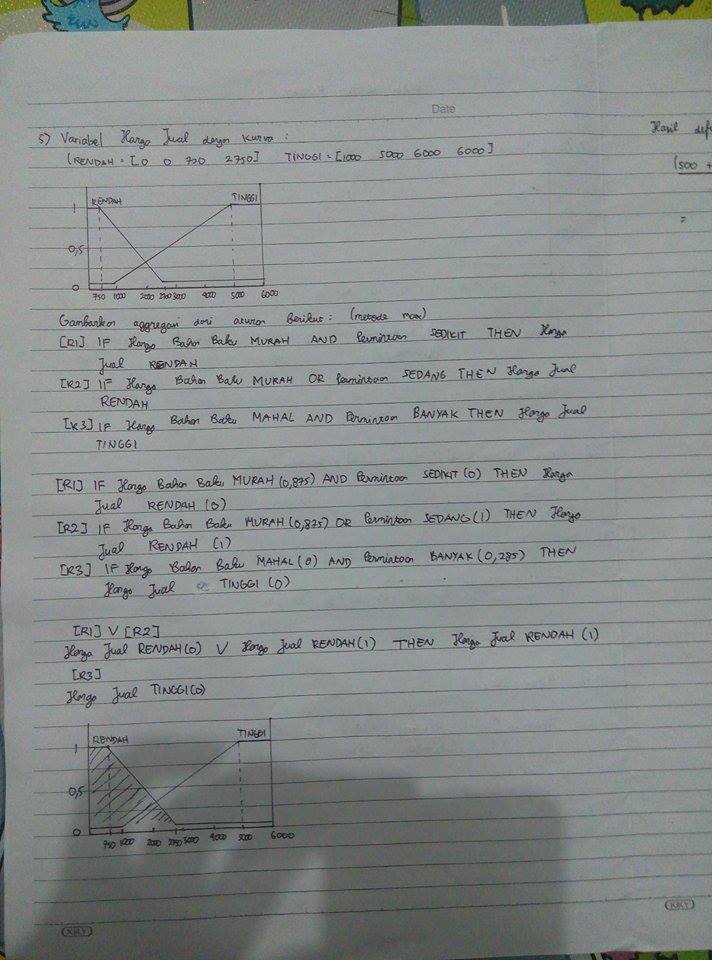 Date
5) Variabel Harga Jual dengan kurva :
(RENDAH = [0 0 750 2750] TINGGI = [1000 5000 6000 6000]
RENDAH TINGGI
1
0,5
0
750 1000 2000 2750 3000 4000 5000 6000
Gambarkan aggregasi dari aturan berikut : (metode max)
[R1] IF Harga Bahan Baku MURAH AND Permintaan SEDIKIT THEN Harga
Jual RENDAH
[R2] IF Harga Bahan Baku MURAH OR Permintaan SEDANG THEN Harga Jual
RENDAH
[R3] IF Harga Bahan Baku MAHAL AND Permintaan BANYAK THEN Harga Jual
TINGGI
[R1] IF Harga Bahan Baku MURAH (0,875) AND Permintaan SEDIKIT (0) THEN Harga
Jual RENDAH (0)
[R2] IF Harga Bahan Baku MURAH (0,875) OR Permintaan SEDANG (1) THEN Harga
Jual RENDAH (1)
[R3] IF Harga Bahan Baku MAHAL (0) AND Permintaan BANYAK (0,285) THEN
Harga Jual TINGGI (0)
[R1] V [R2]
Harga Jual RENDAH (0) V Harga Jual RENDAH (1) THEN Harga Jual RENDAH (1)
[R3]
Harga Jual TINGGI (0)
RENDAH TINGGI
1
0,5
0
750 1000 2000 2750 3000 4000 5000 6000
KKY
Hasil def
(500 +
=
KKY